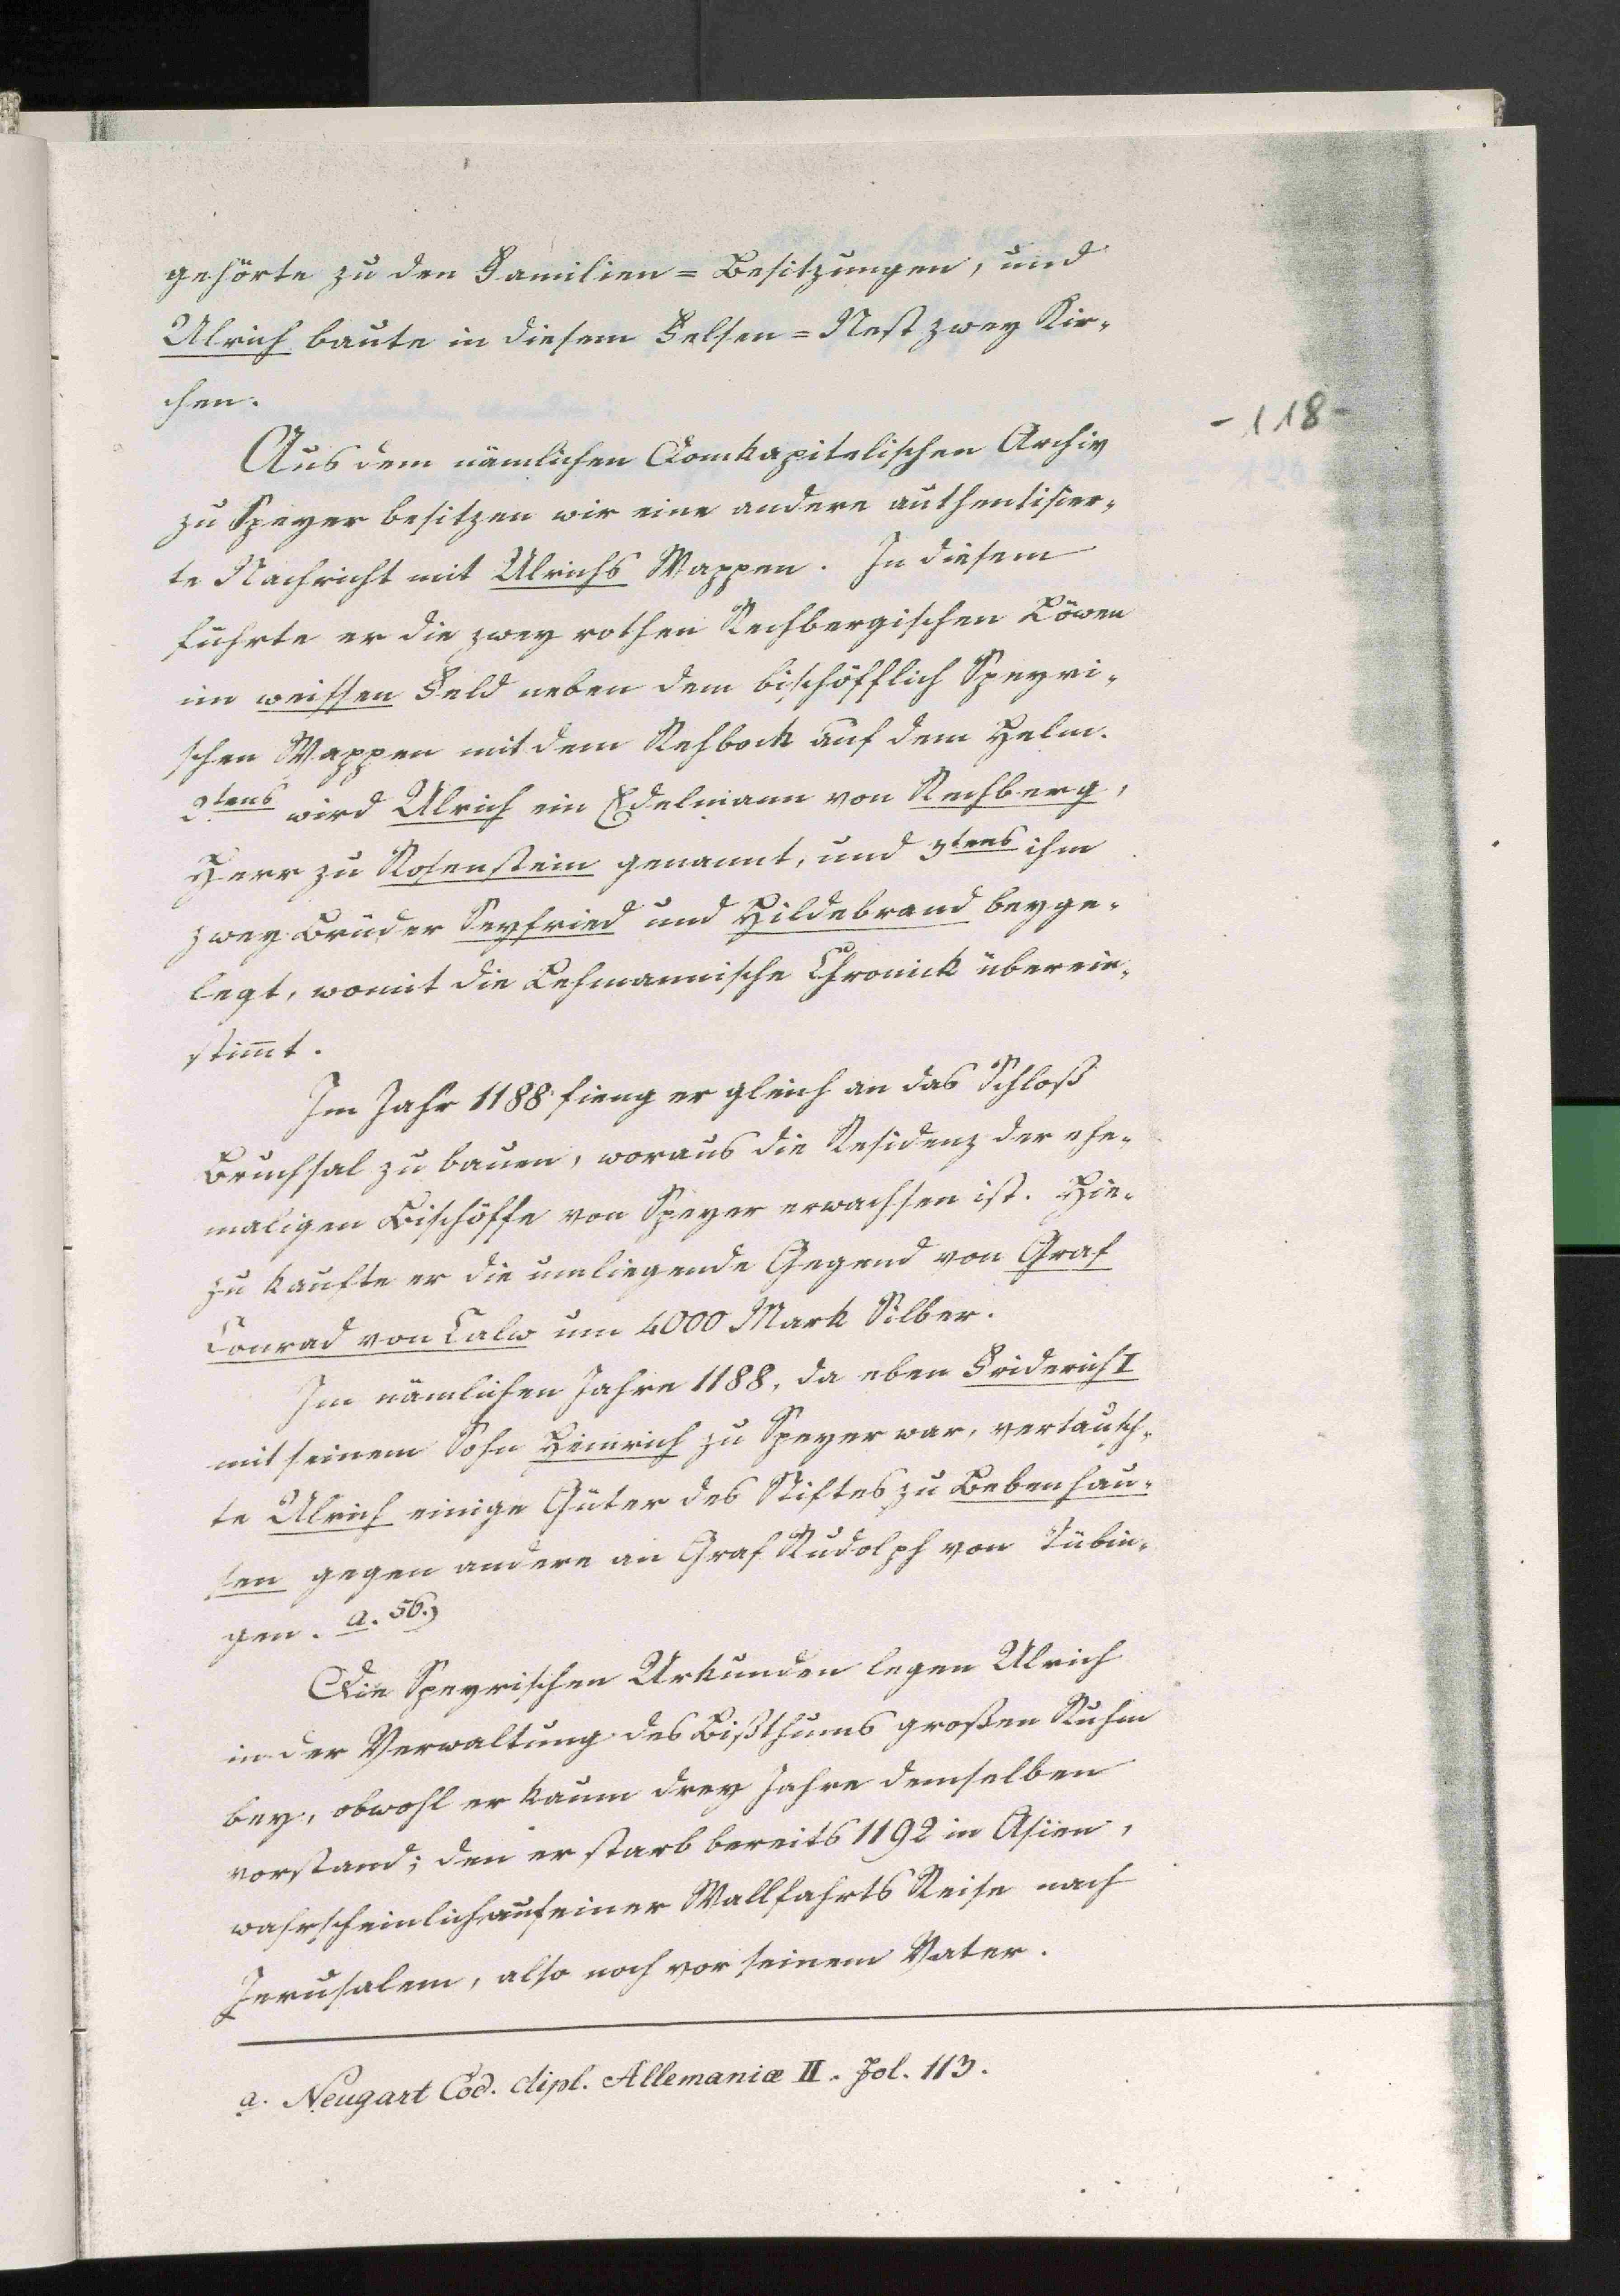 gehörte zu den Familien = Besitzungen, und
Ulrich baute in diesem Felsen = Nest zwey Kir-
chen.
- 118 -
Aus dem nämlichen Domkapitelischen Archiv
zu Speyer besitzen wir eine andere authentisier-
te Nachricht mit Ulrichs Wappen. In diesem
führte er die zwey rothen Rechbergischen Löwen
im weissen Feld neben dem bischöfflich Speyri-
schen Wappen mit dem Rehbock auf dem Helm.
2tens wird Ulrich ein Edelmann von Rechberg,
Herr zu Rosenstein genannt, und 3tens ihm
zwey Brüder Seyfried und Hildebrand beyge-
legt, womit die Lehmannische Chronick überein-
stim̄t.
Im Jahr 1188 fieng er gleich an das Schloß
Bruchsal zu bauen, woraus die Residenz der ehe-
maligen Bischöffe von Speyer erwachsen ist. Hie-
zu kaufte er die umliegende Gegend von Graf
Conrad von Calw um 4000 Mark Silber.
Im nämlichen Jahre 1188, da eben Friderich I
mit seinem Sohn Heinrich zu Speyer war, vertausch-
te Ulrich einige Güter des Stiftes zu Bebenhau-
sen gegen andere an Graf Rudolph von Tübin-
gen. a. 56.)
Die Speyrischen Urkunden legen Ulrich
in der Verwaltung des Bißthums großen Ruhm
bey, obwohl er kaum drey Jahre demselben
vorstand; den er starb bereits 1192 in Asien,
wahrscheinlich auf einer Wallfahrts Reise nach
Jerusalem, also noch vor seinem Vater.
a. Neugart Cod. dipl. Allemaniæ II. Fol. 113.